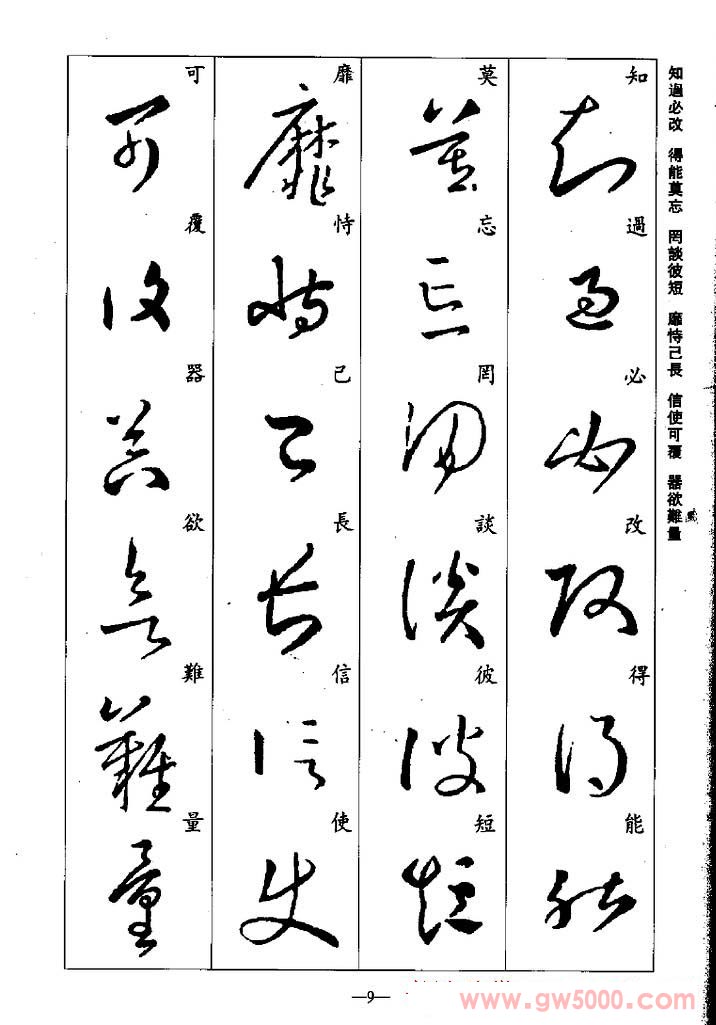 知過必改 得能莫忘 罔談彼短 靡恃己長 信使可覆 器欲難量
知過必改得能
莫忘罔談彼短
靡恃己長信使
可覆器欲難量
—9—
www.gw5000.com